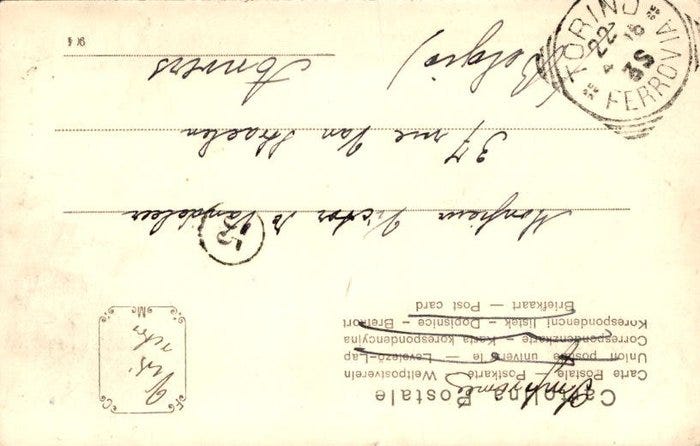 Cartolina Postale
Carte Postale - Postkarte - Weltpostverein
Union postale universelle - Levelező-Lap
Correspondenzkarte - Karta korespondencyjna
Korespondenční lístek - Dopisnice - Brefkort
Briefkaart - Post card
Monsieur Victor de
37 rue Van
Anvers
(Belgio)
TORINO
FERROVIA
22
4